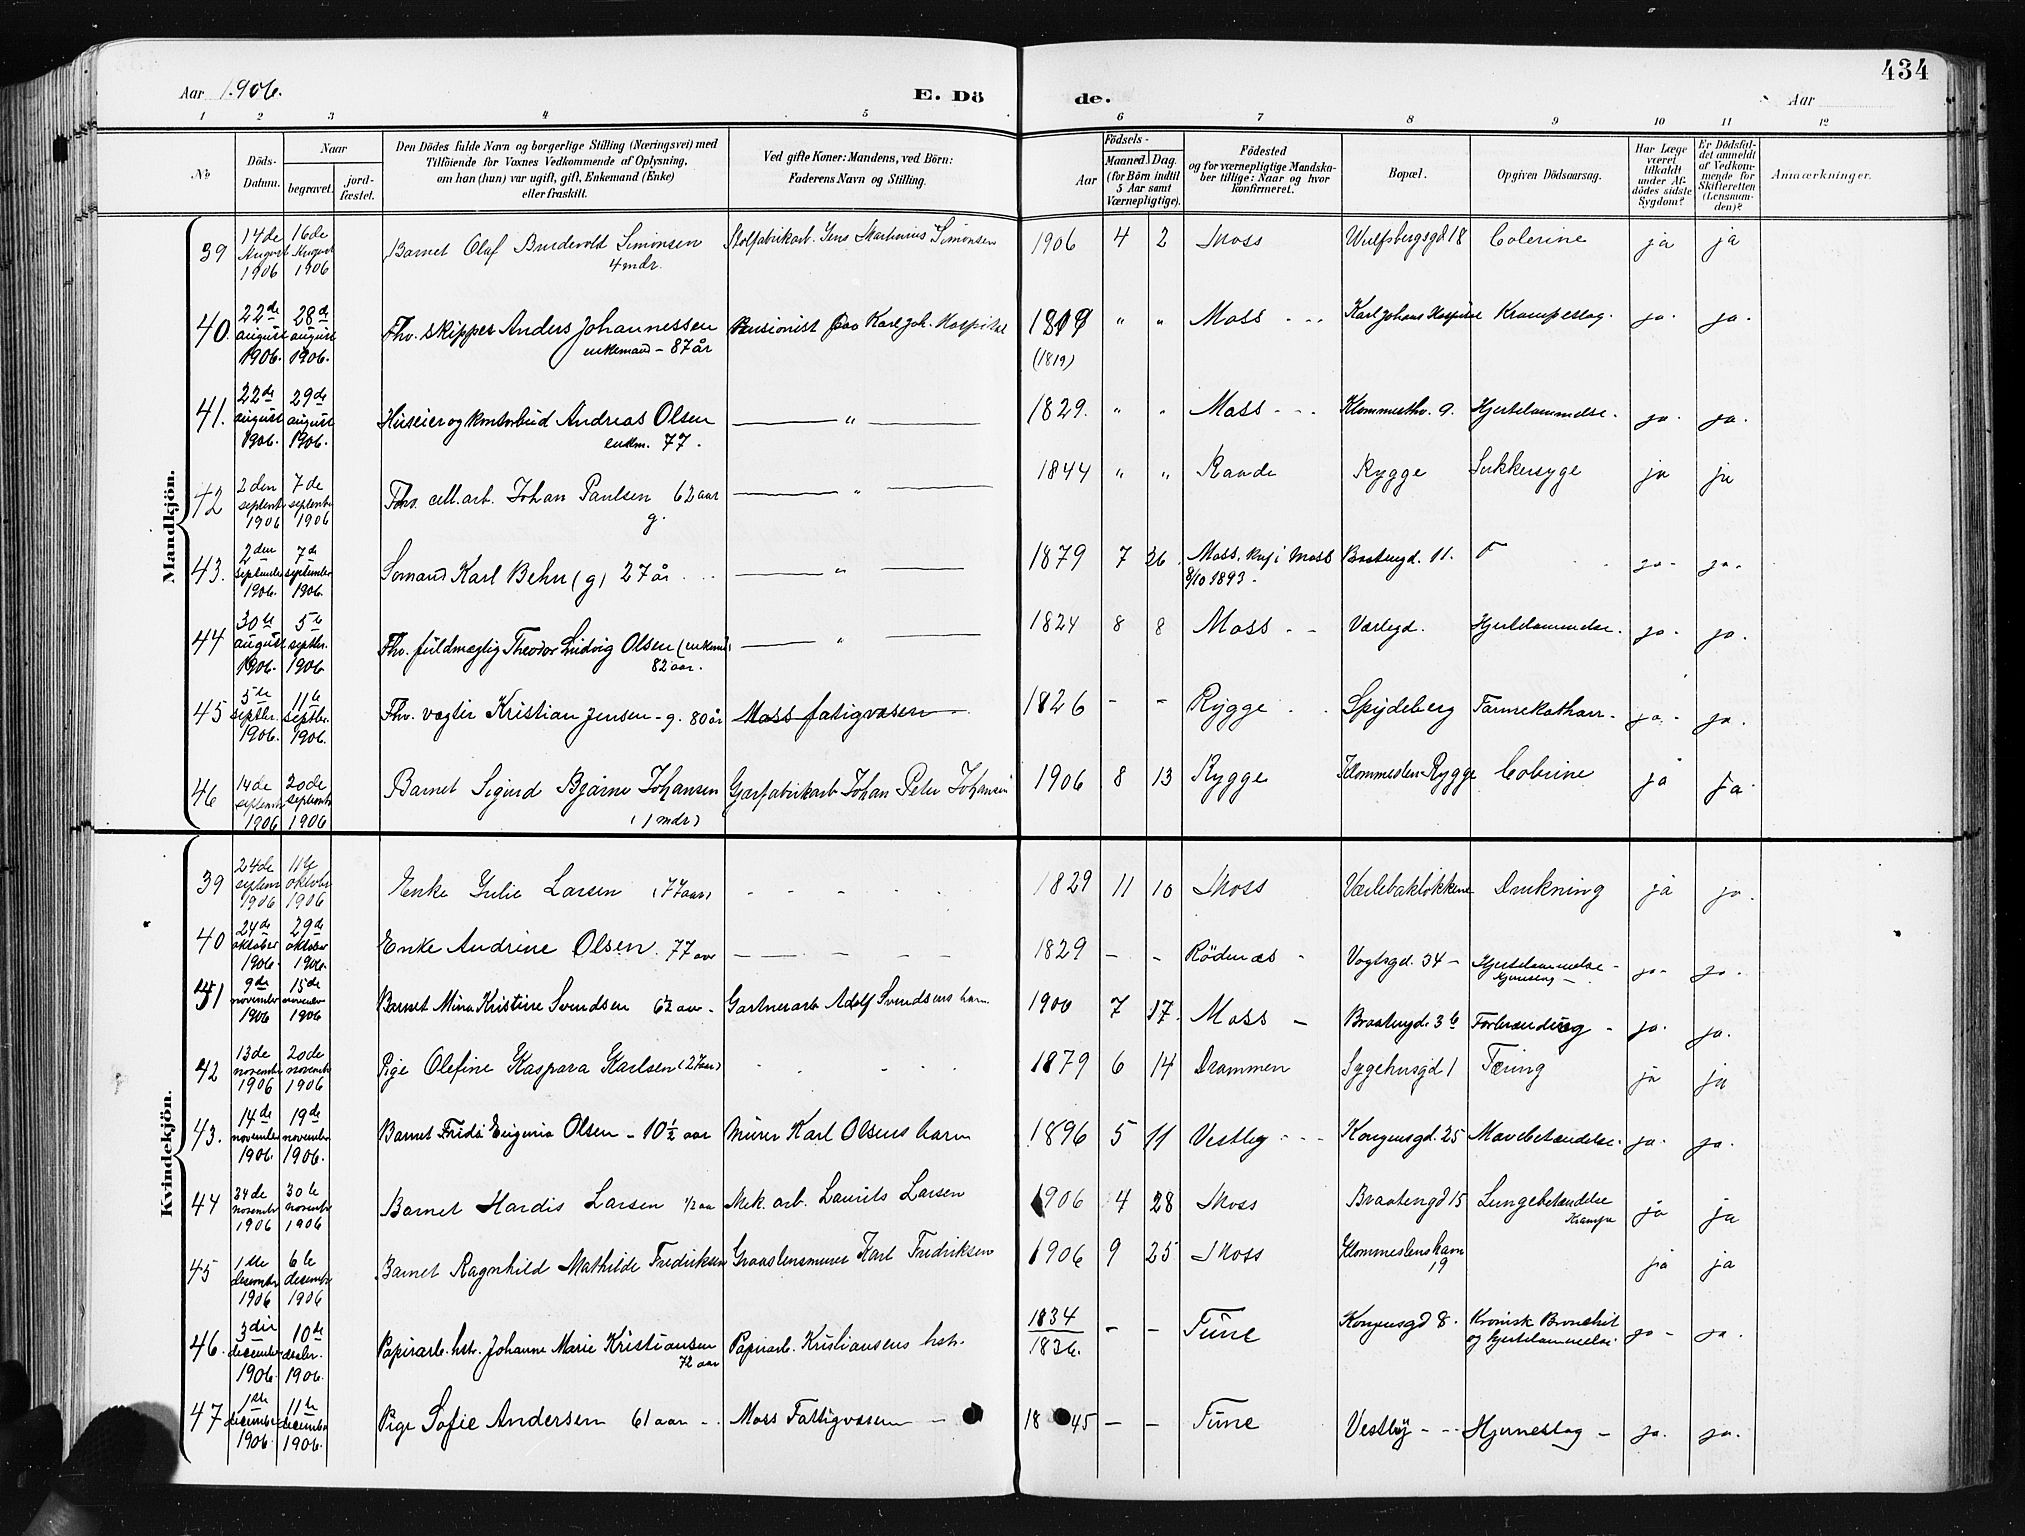 434
Aar 1906.
E. Dö
de.
Aar
1 2 3 4 5 6 7 8 9 10 11 12
No
Döds-Datum.
Naar
begravet.
jord-fæstet.
Den Dödes fulde Navn og borgerlige Stilling (Næringsvei) med
Tilföiende for Voxnes Vedkommende af Oplysning,
om han (hun) var ugift, gift, Enkemand (Enke)
eller fraskilt.
Ved gifte Koner: Mandens, ved Börn:
Faderens Navn og Stilling.
Födsels-
Aar
Maaned. Dag.
(for Börn indtil
5 Aar samt
Værnepligtige).
Födested
og for værnepligtige Mandska-
ber tillige: Naar og hvor
konfirmeret.
Bopæl.
Opgiven Dödsaarsag.
Har Læge
været
tilkaldt
under Af-
dödes sidste
Sygdom?
Er Dödsfal-
det anmeldt
af Vedkom-
mende for
Skifteretten
(Lensman-
den)?
Anmærkninger.
Mandkjön.
39 14de August 1906 16de August 1906 Barnet Olaf Burdevold Simonsen 4 mdr. Jens Martinius Simonsen 1906 4 2 Moss Wulfsbergsgd 18 Colerine ja ja
40. 22de august 1906. 28de august 1906. Fhv. skipper Anders Johannessen enkemand - 87 år Pensionist paa Karl Joh. Hospital 1819 (1819) " " Moss - - - Karl Johans Hospital Krampeslag. ja. ja.
41. 22de august 1906. 29de august 1906. Huseier og kontorbud Andreas Olsen enkm. 77. " 1829. " " Moss - - - Klommesthv. 9. Hjertelammelse. ja. ja.
42 2den septemb 1906 7de septembr 1906 Fhv. cell.arb. Johan Paulsen 62 aar g. " 1844 " " Raade Rygge Sukkersyge ja ja
43. 2den september 1906. 7de september 1906. Sömand Karl Behn (g) 27 år " 1879 7 26. Moss. Knf i Moss 8/10 1893. Braatengd. 11. ja. ja.
44 30te august 1906. 5te septbr. 1906 Fhv. fuldmægtig Theodor Ludvig Olsen (enkemd) 82 aar. " 1824 8 8 Moss - - Værlegd. Hjertelammelse. ja. ja.
45 5te septbr. 1906. 11te septbr. 1906. Fhv. vægter Kristian Jensen - g. 80 år Moss fatigvæsen 1826 - - Rygge Spydeberg Tarmekatharr. ja. ja.
46 14de septembr 1906 20de septembr 1906 Barnet Sigurd Bjarne Johansen (1 mdr) Johan Peter Johansen 1906 8 13 Rygge Klommesten Rygge Colerine ja ja.
Kvindekjön.
39 24de septem 1906 11te oktobr 1906 Enke Julie Larsen (77 aar) - - - - - 1829 11 10 Moss Værlebakløkkene Drukning ja ja.
40 24de oktober 1906. 29de oktober 1906. Enke Andrine Olsen. 77 aar - - - - - 1829 - - Rødenæs - Vogtsgd. 34 - Hjertelammelse - Hjerneslag - ja. ja.
41 9de november 1906 15de november 1906 Barnet Mina Kristine Svendsen 6½ aar - Gartnerarb Adolf Svendsens barn. 1900 7 17. Moss - Braatengd. 36 Forbrænding - ja. ja.
42 13de novembr 1906 20de novembr 1906 Pige Olefine Kaspara Karlsen (27 aar) 1879 6 14 Drammen Sygehusgd 1 Tæring ja ja
43. 14de november 1906. 19de november 1906. Barnet Frida Eugenia Olsen - 10½ aar Murer Karl Olsens barn 1896 5 11 Vestby - - - Kongensgd. 25 Mavebetændelse. ja. ja.
44 24de novembr 1906 30te novembr 1906 Barnet Hardis Larsen ½ aa Mek. arb. Laurits Larsen 1906 4 28 Moss Braatengd 15 Lungebetændelse Krampe ja ja
45 1ste desembr 1906 6te desembr 1906 Barnet Ragnhild Mathilde Fredriksen Graastensmurer Karl Fredriksen 1906 9 25 Moss Klommestenshavn 19 ja ja
46. 3die december 1906. 10de 1906. Papirarb. hstr. Johanne Marie Kristiansen 72 aar Papirarb. Kristiansens hstr. 1834 1836. - - Tune Kongensgd 8. Kronisk Bronchit og hjertelammelse. ja - ja.
47 1ste december 1906 11te december 1906. Pige Sofie Andersen 61 aar - - Moss Fattigvæsen - 1845 - - Tune Vestby - - - Hjerneslag - ja. ja.